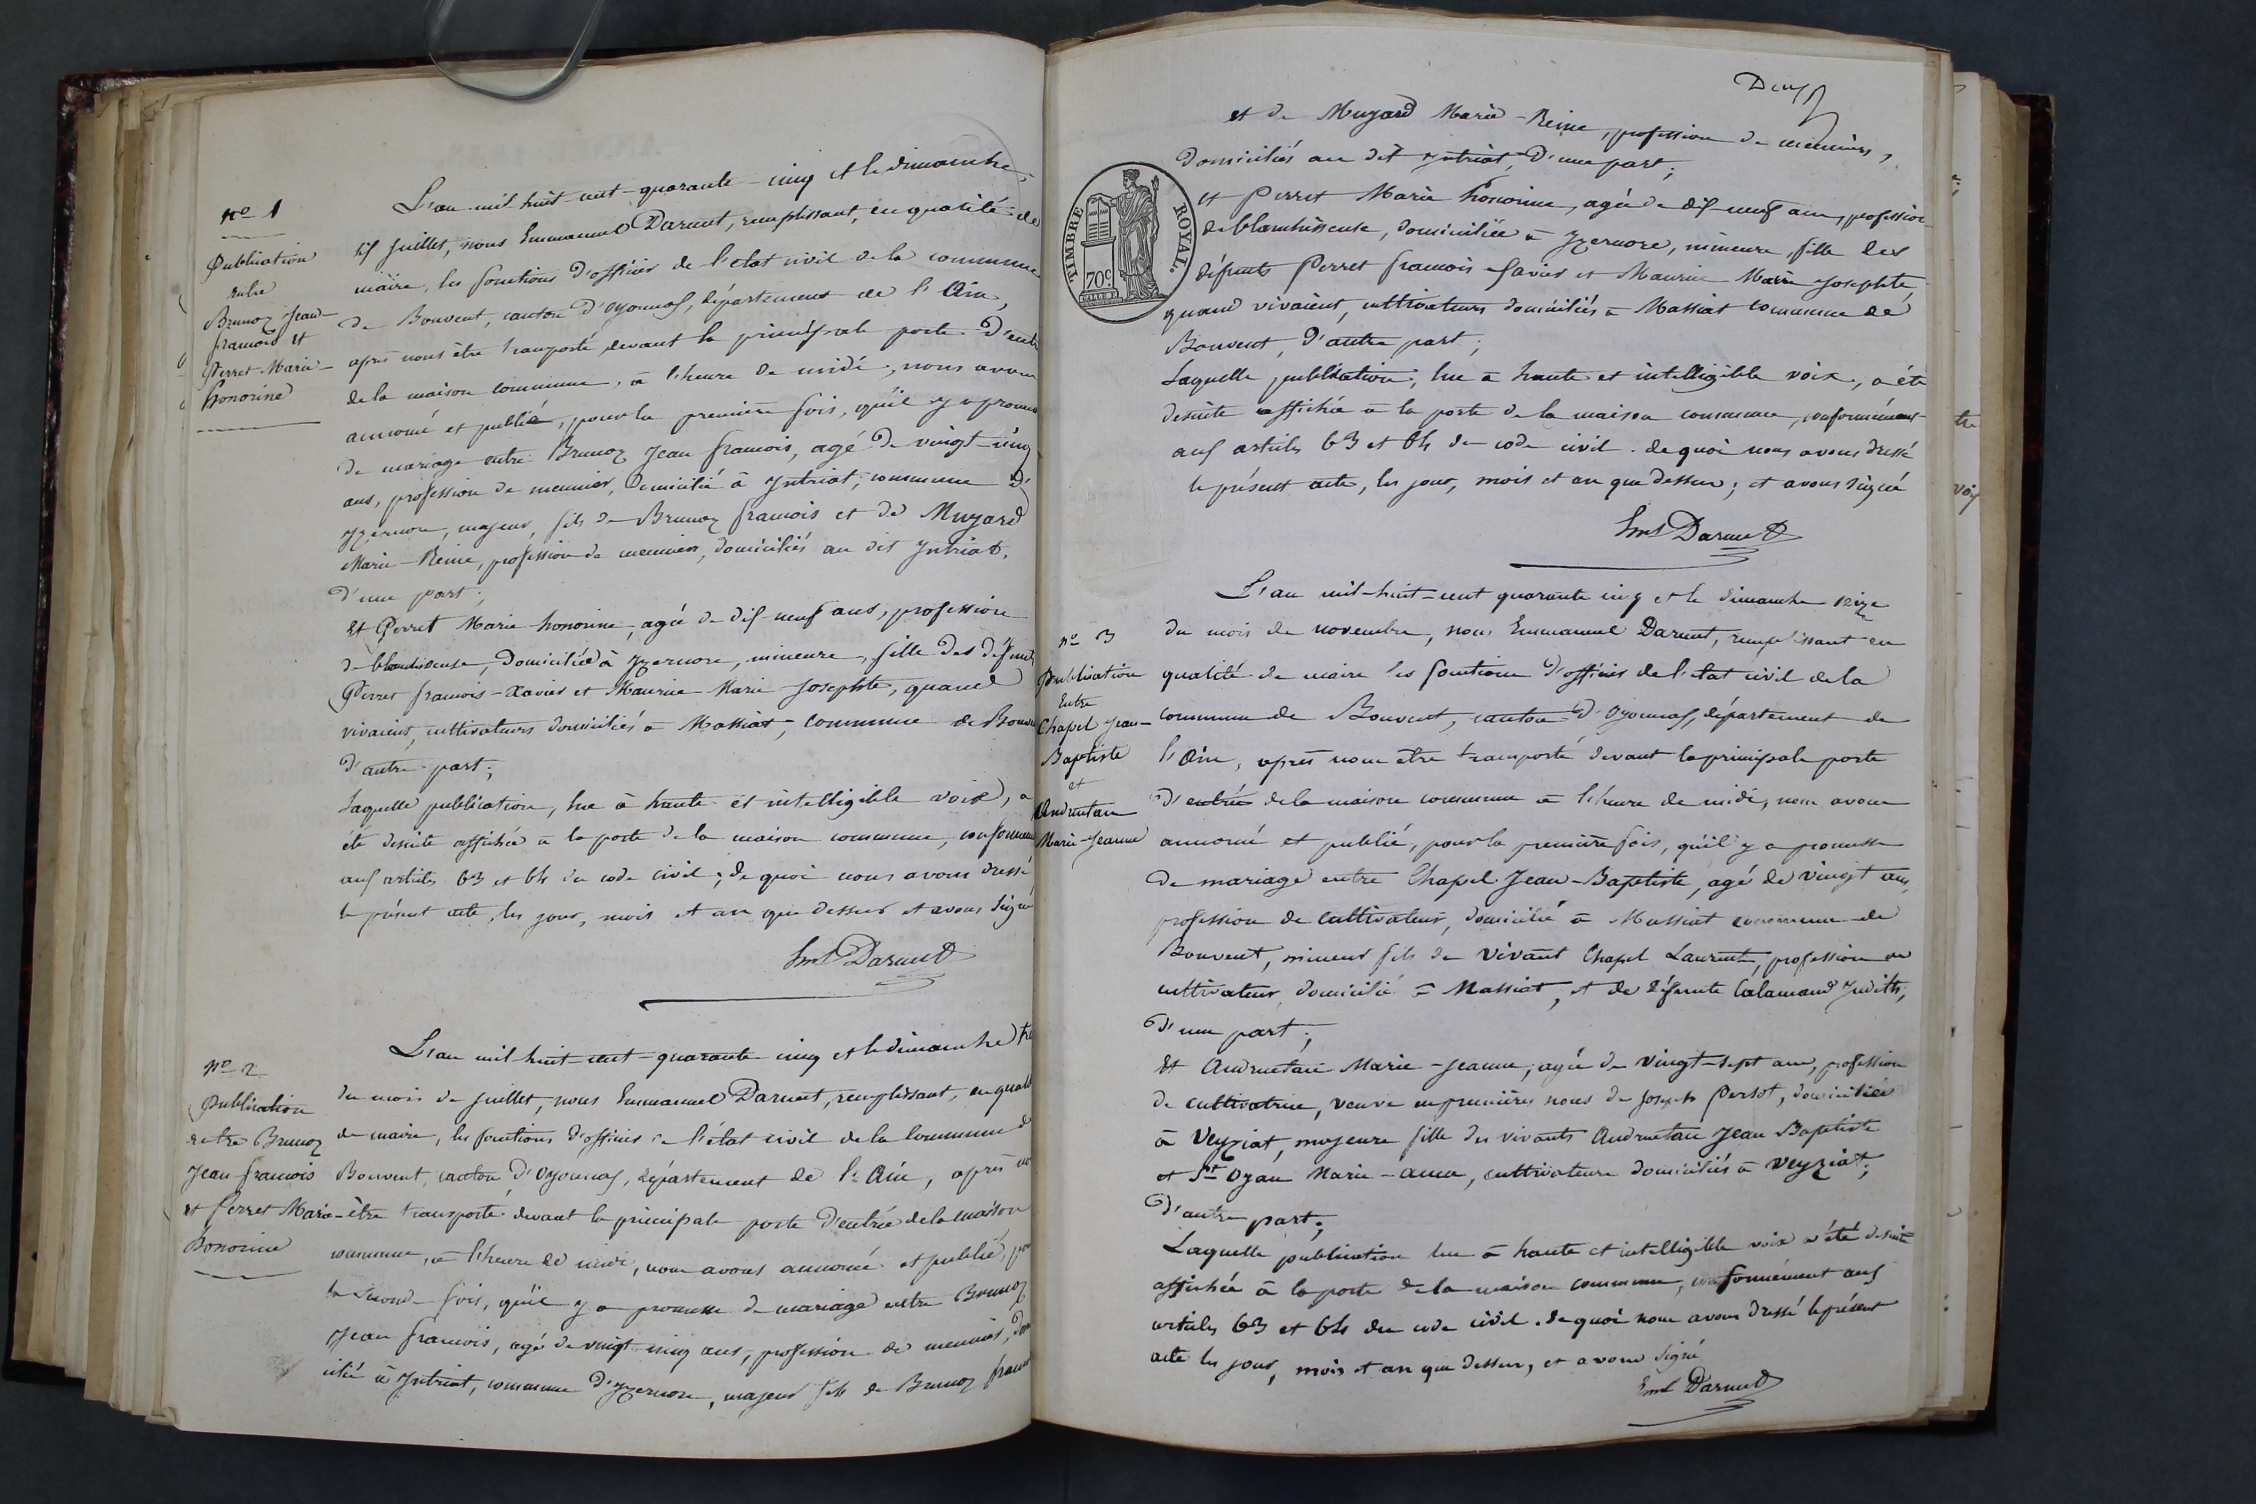 nº 1
Publication
entre
Brunoz Jean
francois et
Perret Marie
honorine
L'an mil huit cent quarante cinq et le dimanche
six juillet, nous Emmanuel Darmet, remplissant, en qualité de
maire, les fonctions d'officier de l'état civil de la commune
de Bouvent, canton d'oyonnax, département de l'Ain,
après nous être transporté devant la principale porte d'entr
de la maison commune, à l'heure de midi, nous avons
annoncé et publié, pour la première fois, qu'il y a promes
de mariage entre Brunoz Jean francois, agé de vingt-cinq
ans, profession de meunier, domicilié à Yntriat, commune d'
yzernore, majeur, fils de Brunoz francois et de Muzard
Marie-Reine, profession de meuniers, domiciliés au dit Yntriat,
d'une part;
Et Perret Marie honorine, agée de dix neuf ans, profession
de blanchisseuse, domiciliée à Yzernore, mineure, fille des défunts
Perret francois-Xavier et Maurice Marie Josephte, quand
vivaient, cultivateurs domiciliés à Massiat, commune de Bouv
d'autre part;
Laquelle publication, lue à haute et intelligible voix, a
été desuite affichée à la porte de la maison commune, conformem
aux articles 63 et 64 du code civil; de quoi nous avons dressé
le présent acte, les jour, mois et an que dessus et avons signé
Eml Darmet
nº 2
Publication
entre Brunoz
Jean francois
et Perret Marie
honorine
L'an mil huit cent quarante cinq et le dimanche tre
du mois de juillet, nous Emmanuel Darmet, remplissant, en qualit
de maire, les fonctions d'officier de l'état civil de la commune d
Bouvent, canton d'Oyonnax, département de l'Ain, après no
être transporté devant la principale porte d'entrée de la maison
commune, à l'heure de midi, nous avons annoncé et publié, pou
la seconde fois, qu'il y a promesse de mariage entre Brunoz
Jean francois, agé de vingt cinq ans, profession de meunier, dom
cilié à Yntriat, commune d'Yzernore, majeur fils de Brunoz franc
Deux
et de Muzard Marie-Reine, profession de meuniers,
domiciliés au dit Yntriat, d'une part;
TIMBRE ROYAL.
70c.
et Perret Marie honorine, agée de dix neuf ans, profession
de blanchisseuse, domiciliée à Yzernore, mineure, fille des
défunts Perret francois Xavier et Maurice Marie Josephte,
quand vivaient, cultivateurs domiciliés à Massiat commune de
Bouvent, d'autre part;
Laquelle publication, lue à haute et intelligible voix, a été
desuite affichée à la porte de la maison commune, conformément
aux articles 63 et 64 du code civil. de quoi nous avons dressé
le présent acte, les jour, mois et an que dessus; et avons signé
Eml Darmet
nº 3
Publication
Entre
Chapel Jean-
Baptiste
et
Andruetan
Marie-Jeanne
L'an mil-huit-cent quarante cinq et le dimanche seize
du mois de novembre, nous Emmanuel Darmet, remplissant en
qualité de maire les fonctions d'officier de l'état civil de la
commune de Bouvent, canton d'oyonnax, département de
l'Ain, après nous être transporté devant la principale porte
d'entrée de la maison commune à l'heure de midi, nous avons
annoncé et publié, pour la première fois, qu'il y a promesse
de mariage entre Chapel Jean-Baptiste, agé de vingt ans,
profession de cultivateur, domicilié à Massiat commune de
Bouvent, mineur fils de vivant Chapel Laurent, profession de
cultivateur, domicilié à Massiat, et de défunte Calamand Judith,
d'une part;
Et Andruetan Marie-Jeanne, agée de vingt-sept ans, profession
de cultivatrice, veuve en premières noces de joseph Persot, domiciliée
à Veyziat, majeure fille des vivants Andruetan Jean Baptiste
et St Oyan Marie-anna, cultivateurs domiciliés à Veyziat;
d'autre part;
Laquelle publication lue à haute et intelligible voix a été desuite
affichée à la porte de la maison commune, conformément aux
articles 63 et 64 du code civil. de quoi nous avons dressé le présent
acte les jour, mois et an que dessus, et avons signé
Eml Darmet